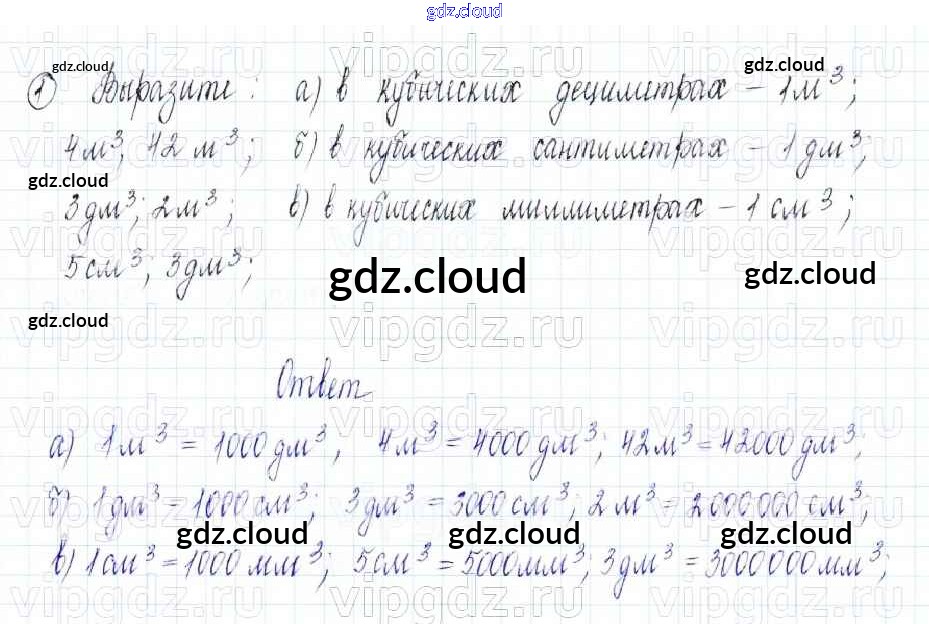 gdz.cloud
gdz.cloud gdz.cloud
1 Выразите: а) в кубических дециметрах – 1м³;
4м³; 42 м³; б) в кубических сантиметрах – 1 дм³;
gdz.cloud
3дм³; 2м³; в) в кубических миллиметрах – 1 см³;
5см³; 3дм³;
gdz.cloud gdz.cloud
gdz.cloud
vipgdz.ru
Ответ
а) 1м³ = 1000дм³, 4м³ = 4000дм³; 42м³ = 42000дм³;
б) 1дм³ = 1000см³; 3дм³ = 3000см³; 2м³ = 2000000см³;
gdz.cloud gdz.cloud gdz.cloud
в) 1см³ = 1000мм³; 5см³ = 5000мм³; 3дм³ = 3000000мм³;
vipgdz.ru vipgdz.ru vipgdz.ru